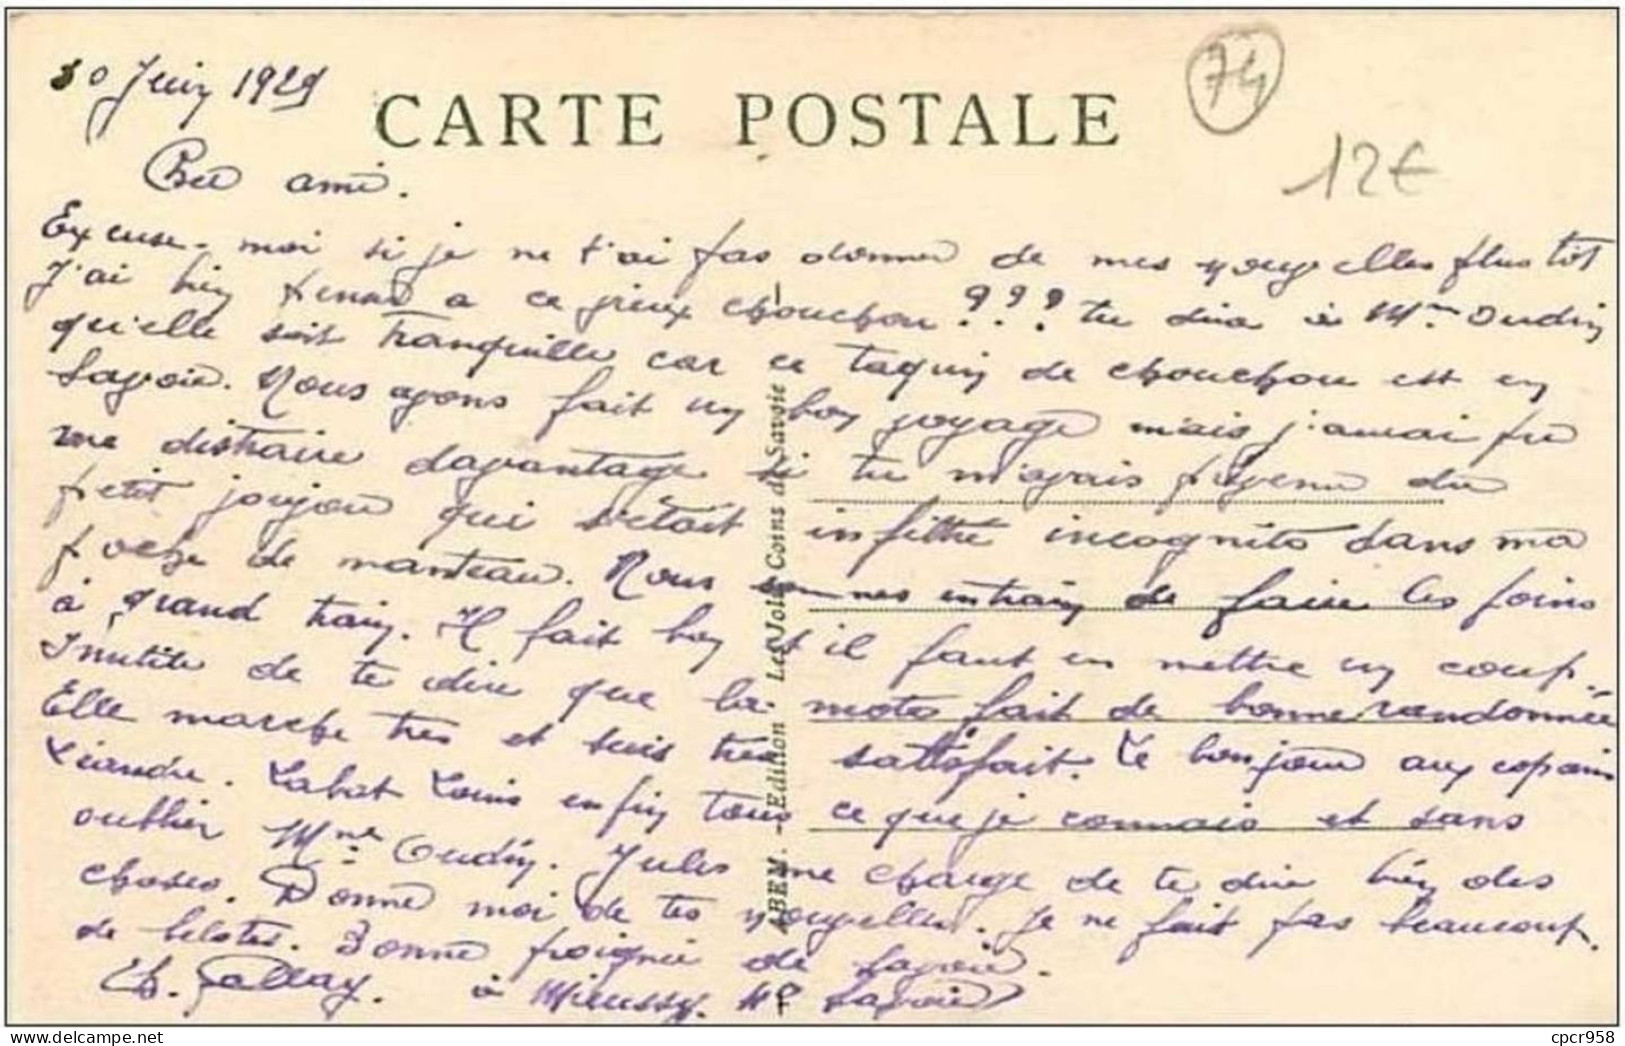 30 Juin 1929
CARTE POSTALE
74
12€
ami.
Excuse-moi si je ne t'ai pas donner de mes nouvelles plus tôt
J'ai bien pensé a ce vieux chouchou ??? tu dira à Mme Oudin
qu'elle soit tranquille car ce taquin de chouchou est en
Savoie. Nous avons fait un bon voyage mais j'aurai pu
me distraire davantage si tu m'avais prévenu du
petit joujou qui s'était infiltré incognito dans ma
poche de manteau. Nous sommes entrain de faire les foins
à grand train. Il fait bon et il faut en mettre un coup.
Inutile de te dire que la moto fait de bonne randonnée
Elle marche tres et suis tres sattisfait. Le bonjour aux copains
Léandre. Labat Louis enfin tous ce que je connais et sans
oublier Mme Oudin. Jules me charge de te dire bien des
choses. Donne moi de tes nouvelles. Je ne fait pas beaucoup
de belotes. Bonne poignée de Savoie.
Ch. Pallay. à Mieussy. Hte Savoie
ABEM. - Edition Les Jolis Coins de Savoie
cpcr958